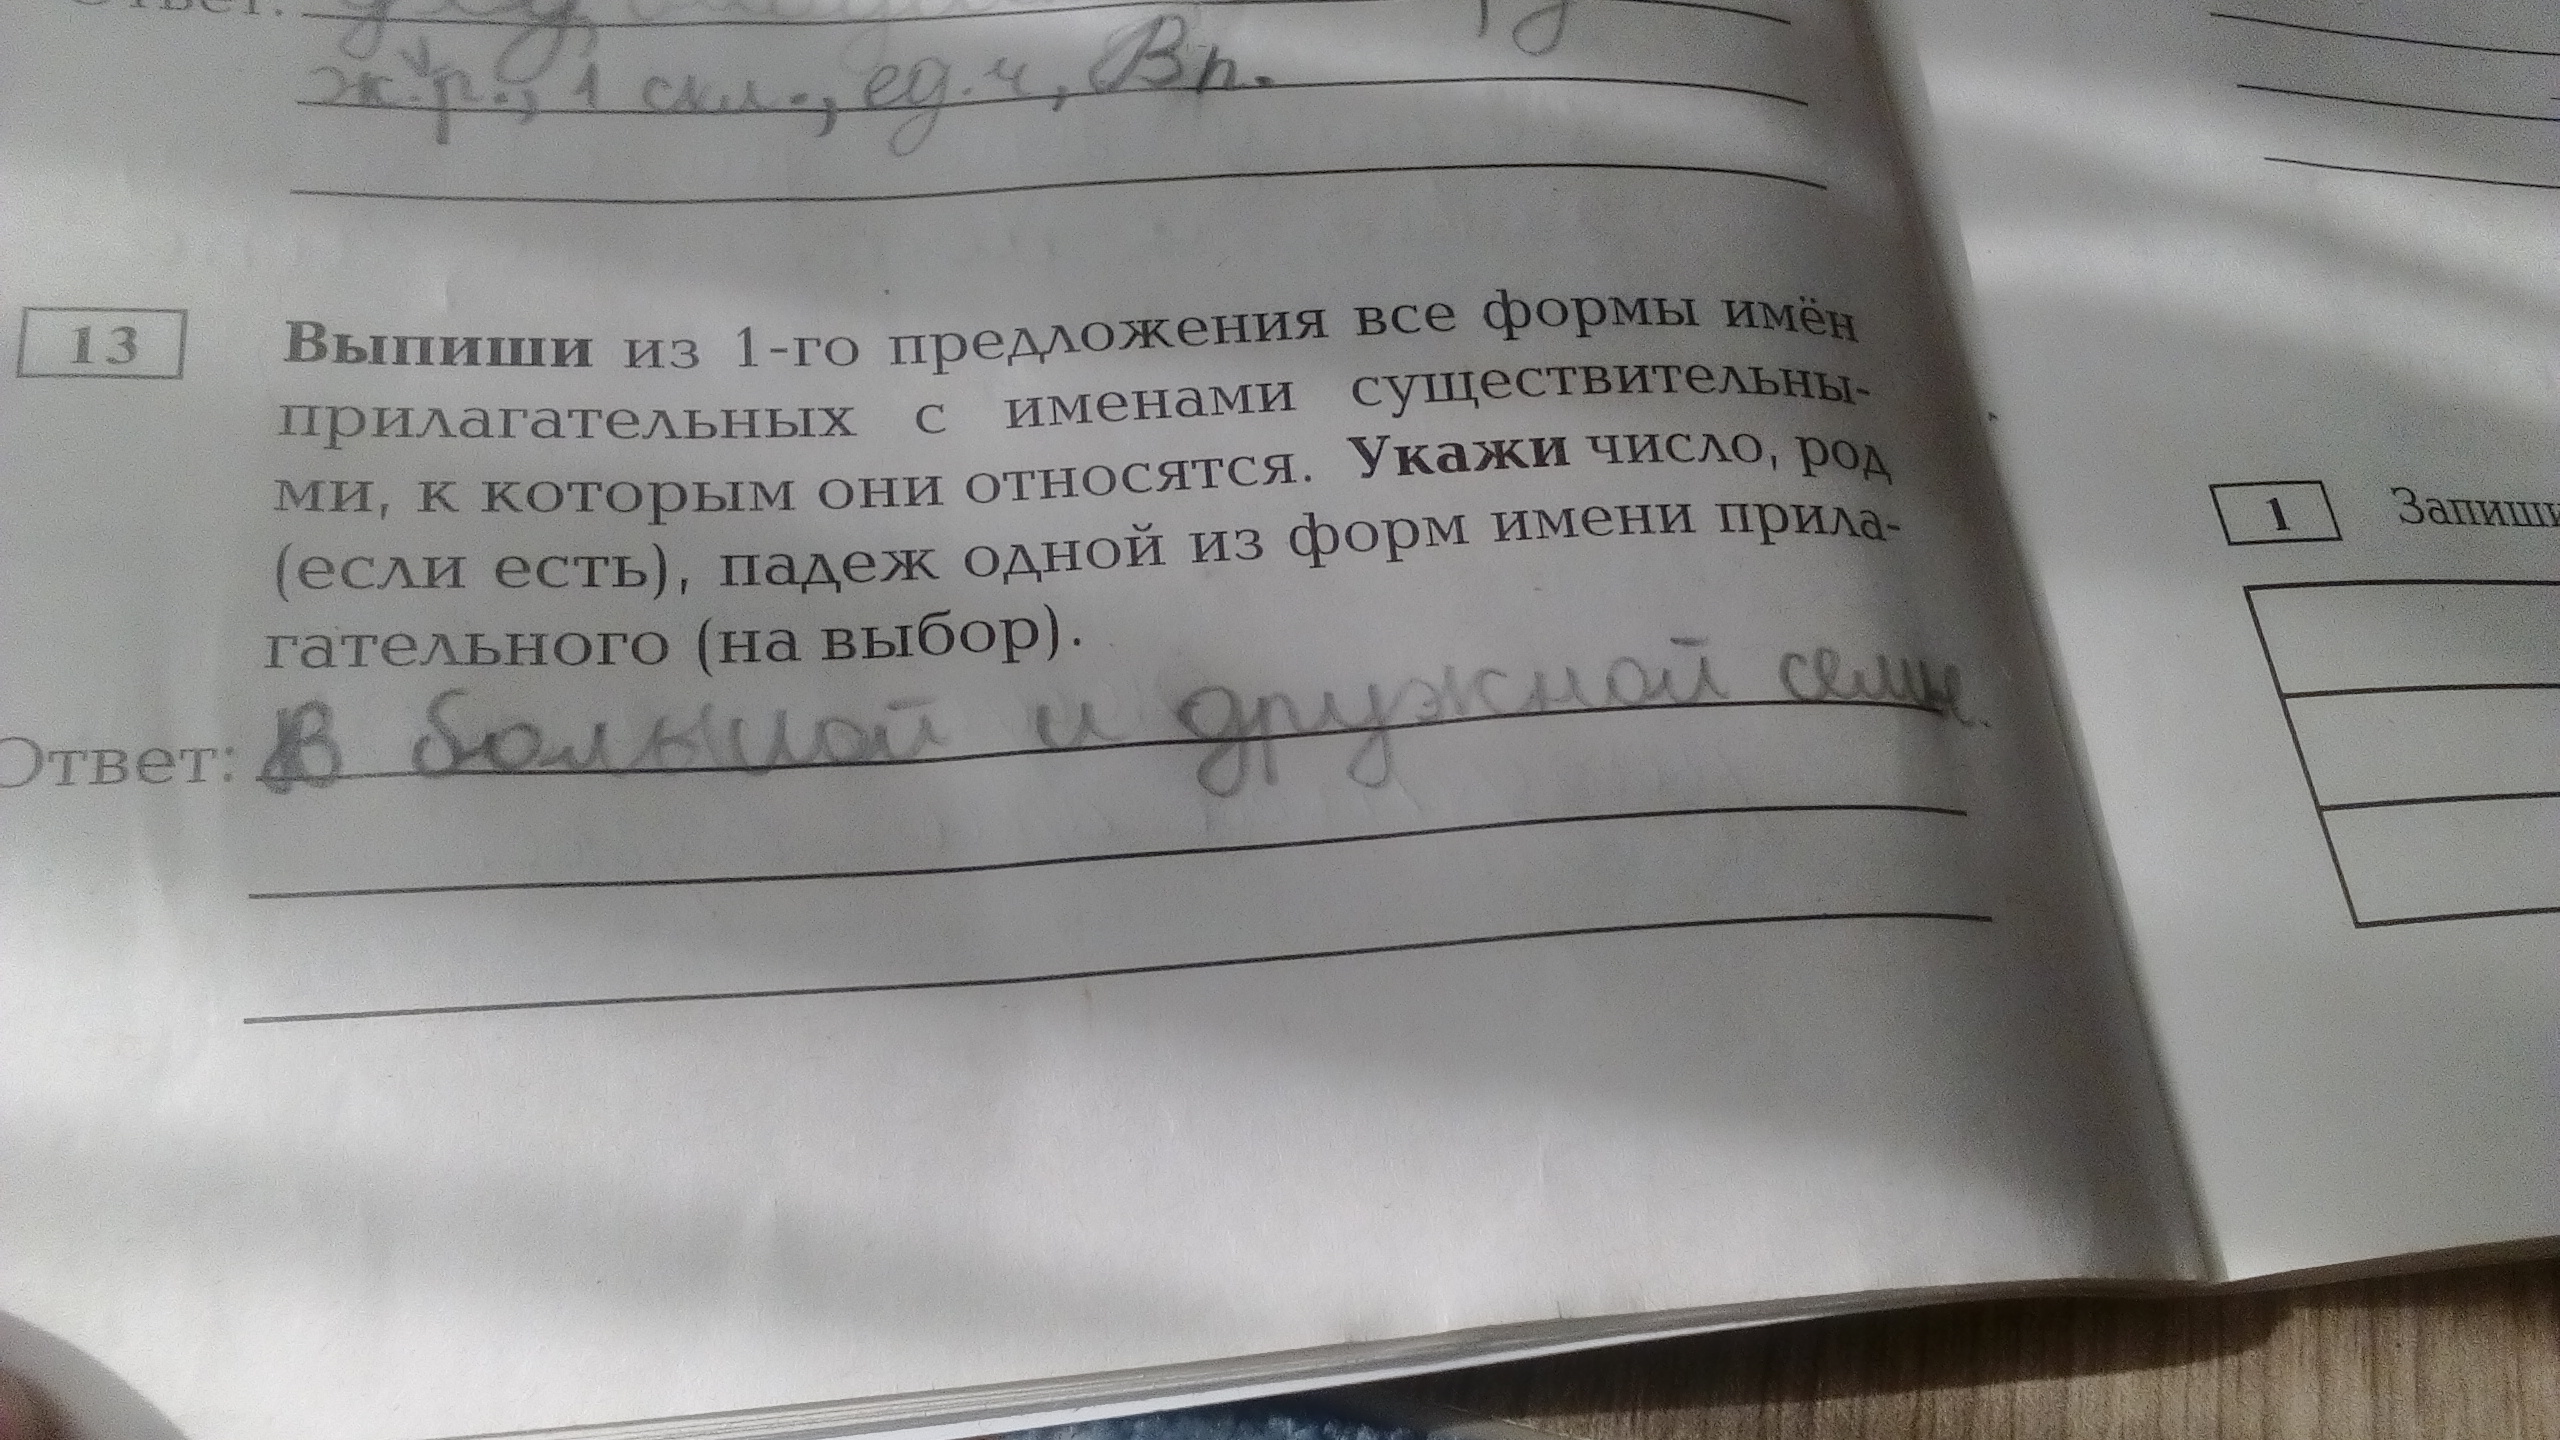 Ответ:
ж.р., 1 скл., ед.ч, Вп.
13 Выпиши из 1-го предложения все формы имён
прилагательных с именами существительны-
ми, к которым они относятся. Укажи число, род
(если есть), падеж одной из форм имени прила-
гательного (на выбор).
Ответ: В большой и дружной семье.
1 Запиши